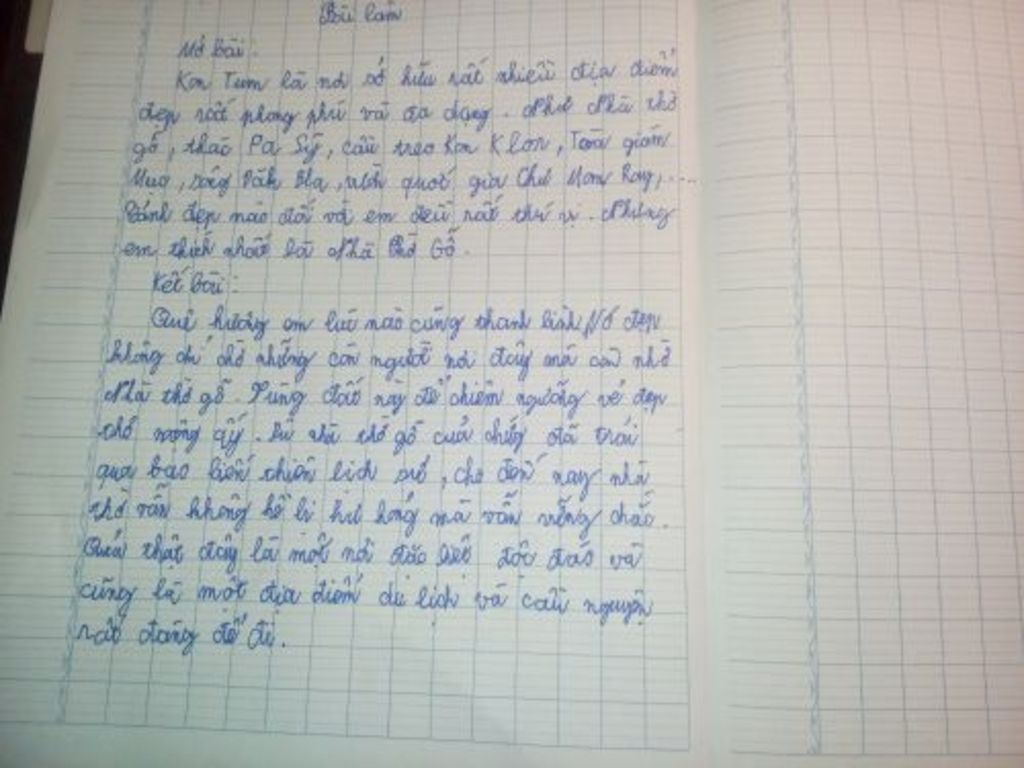 Bài làm
Mở bài:
Kon Tum là nơi sở hữu rất nhiều địa điểm
đẹp rất phong phú và đa dạng. Như Nhà thờ
gỗ, thác Pa Sỹ, cầu treo Kon Klon, Toà giám
Mục, sông Đăk Bla, quốc gia Chư Mom Ray,....
Cảnh đẹp nào đối với em đều rất thú vị. Nhưng
em thích nhất là Nhà Thờ Gỗ.
Kết bài:
Quê hương em lúc nào cũng thanh bình Nó đẹp
không chỉ nhờ những con người nơi đây mà còn nhờ
Nhà thờ gỗ. Vùng đất này để chiêm ngưỡng vẻ đẹp
nhà thờ gỗ của đã trải
qua bao biến thiên lịch sử, cho đến nay nhà
thờ vẫn không hề bị hư hỏng mà vẫn vững chắc.
Quả thật đây là một nơi độc đáo và
cũng là một địa điểm du lịch và cầu nguyện
rất đáng để đi.